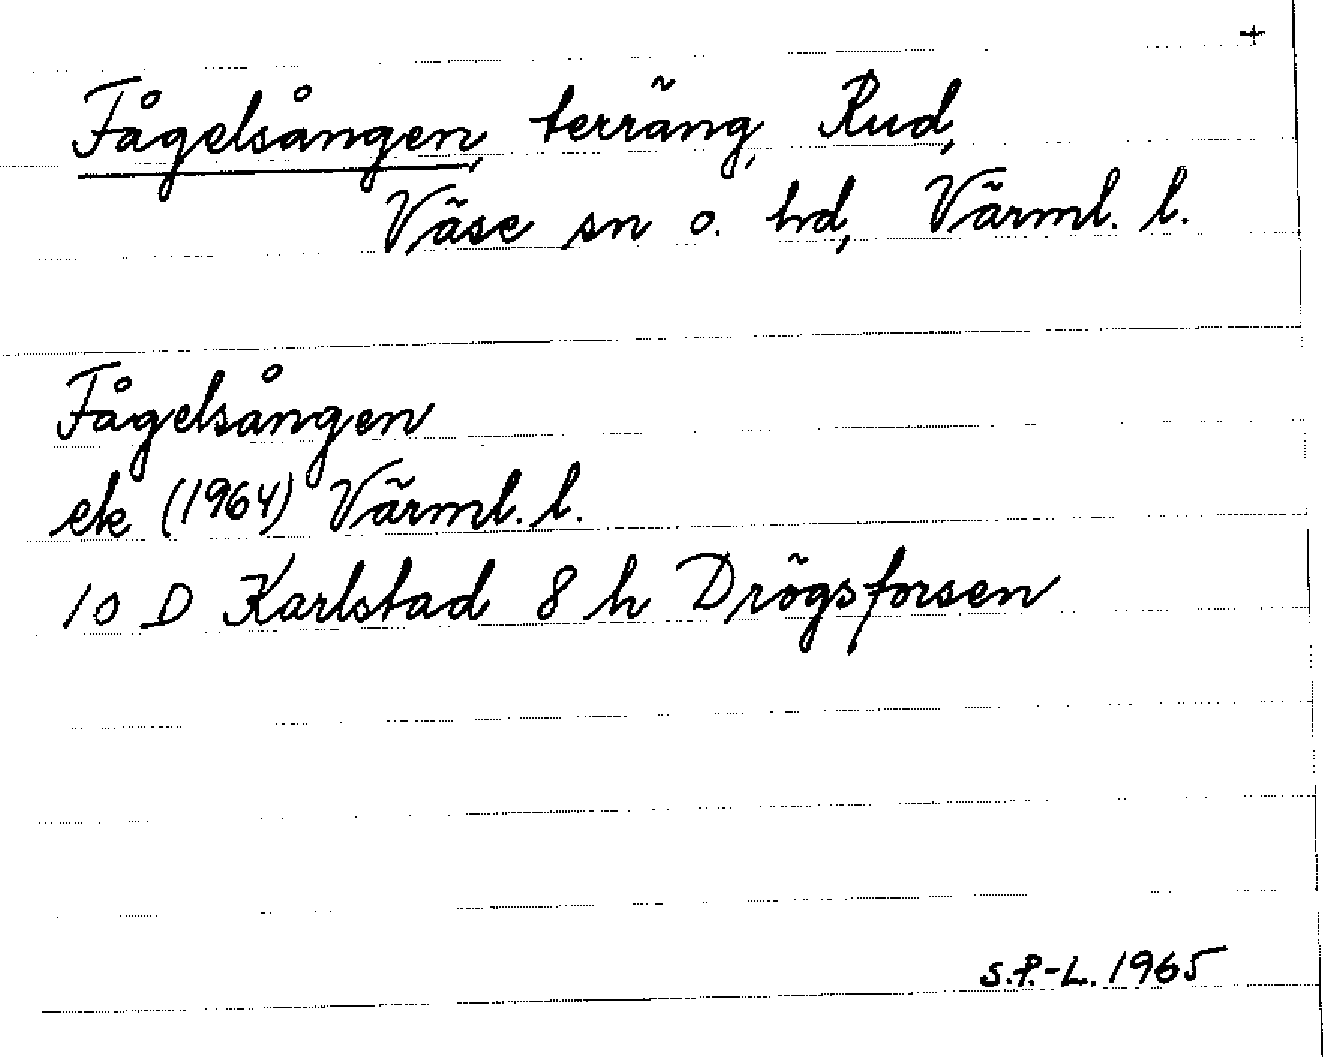 +
Fågelsången, terräng, Rud,
Väse sn o. hd, Värml. l.
Fågelsången
ek (1964) Värml. l.
10 D Karlstad 8 h Drögsforsen
S.P.-L. 1965